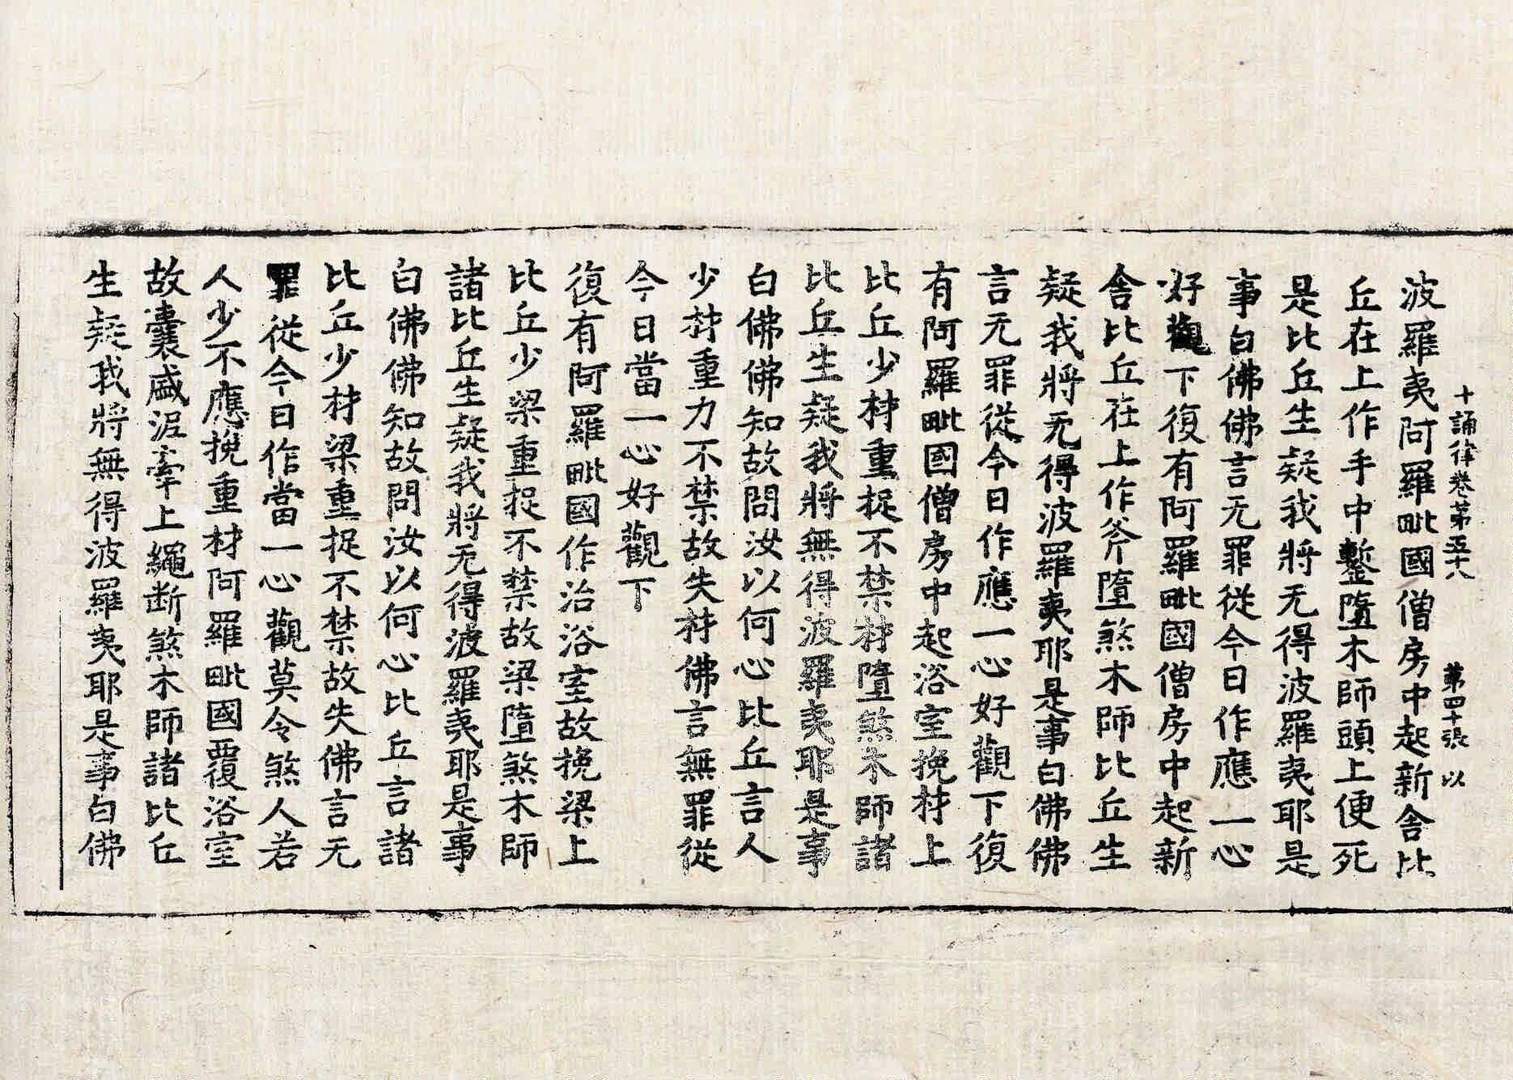 十誦律卷第五十八　第四十張　以
波羅夷阿羅毗國僧房中起新舍比
丘在上作手中鏨墮木師頭上便死
是比丘生疑我將无得波羅夷耶是
事白佛佛言无罪從今日作應一心
好觀下復有阿羅毗國僧房中起新
舍比丘在上作斧墮煞木師比丘生
疑我將无得波羅夷耶是事白佛佛
言无罪從今日作應一心好觀下復
有阿羅毗國僧房中起浴室挽材上
比丘少材重捉不禁材墮煞木師諸
比丘生疑我將無得波羅夷耶是事
白佛佛知故問汝以何心比丘言人
少材重力不禁故失材佛言無罪從
今日當一心好觀下
復有阿羅毗國作治浴室故挽梁上
比丘少梁重捉不禁故梁墮煞木師
諸比丘生疑我將无得波羅夷耶是事
白佛佛知故問汝以何心比丘言諸
比丘少材梁重捉不禁故失佛言无
罪從今日作當一心觀莫令煞人若
人少不應挽重材阿羅毗國覆浴室
故囊盛泥牽上繩断煞木師諸比丘
生疑我將無得波羅夷耶是事白佛